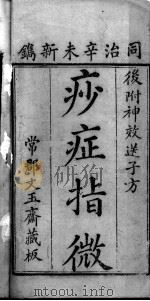 同治辛未新鐫
後附神效送子方
痧症指微
常郡文玉齋藏板
www.mtoou.info